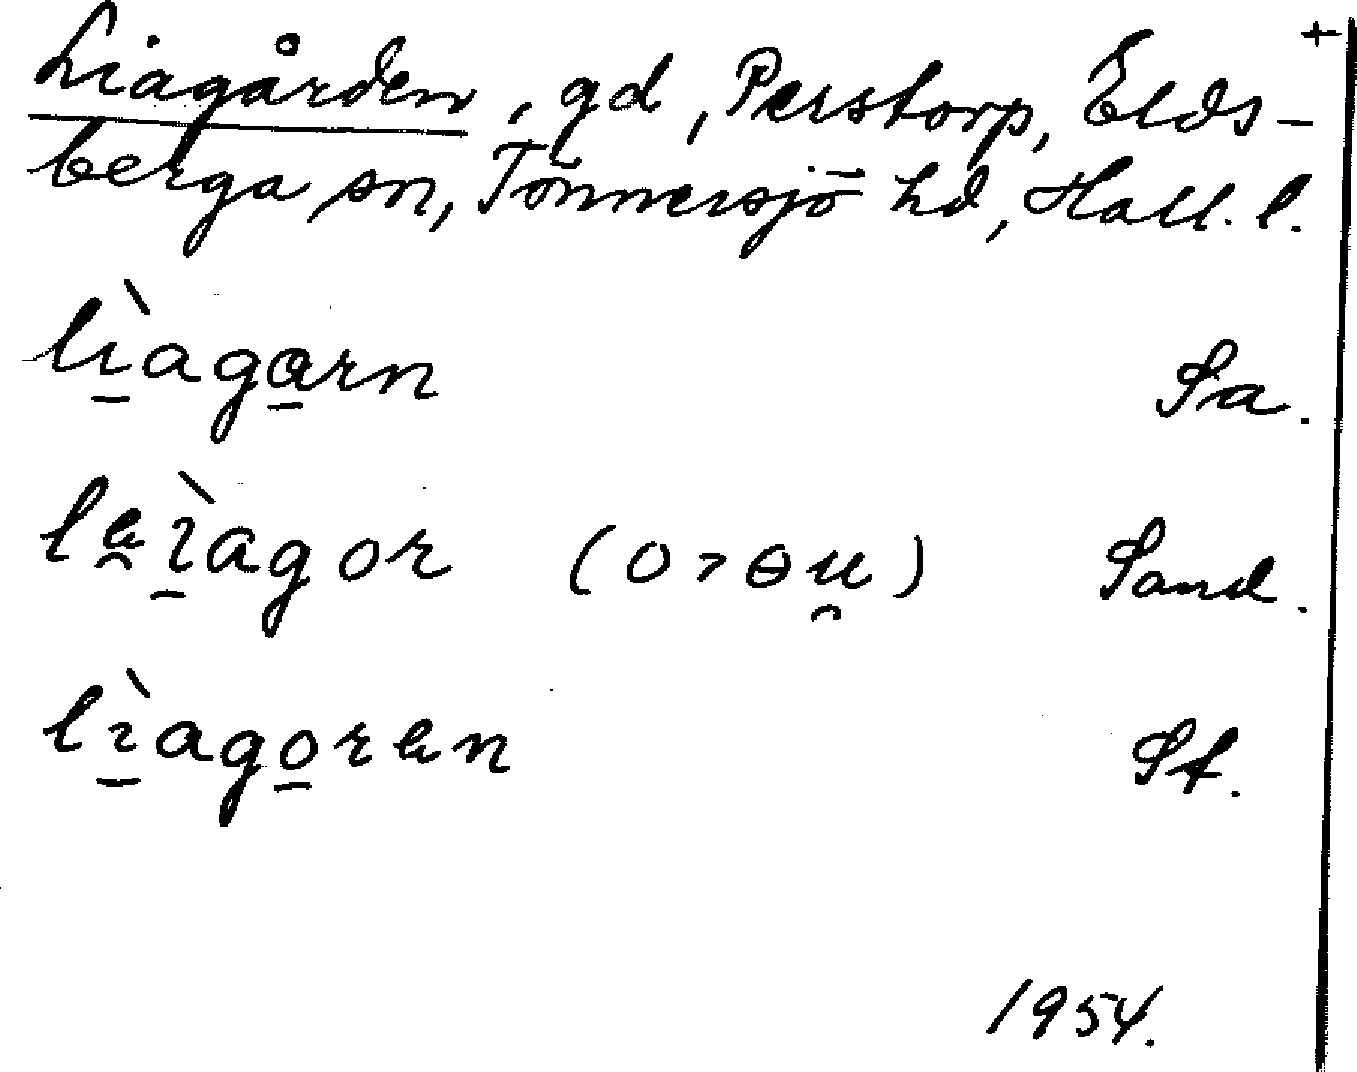 Liagården, gd, Perstorp, Elds- +
berga sn, Tönnersjö hd, Hall. l.
lìagarn Sa.
leìagor (o > ɵu) Sand.
lìagoren Sf.
1954.